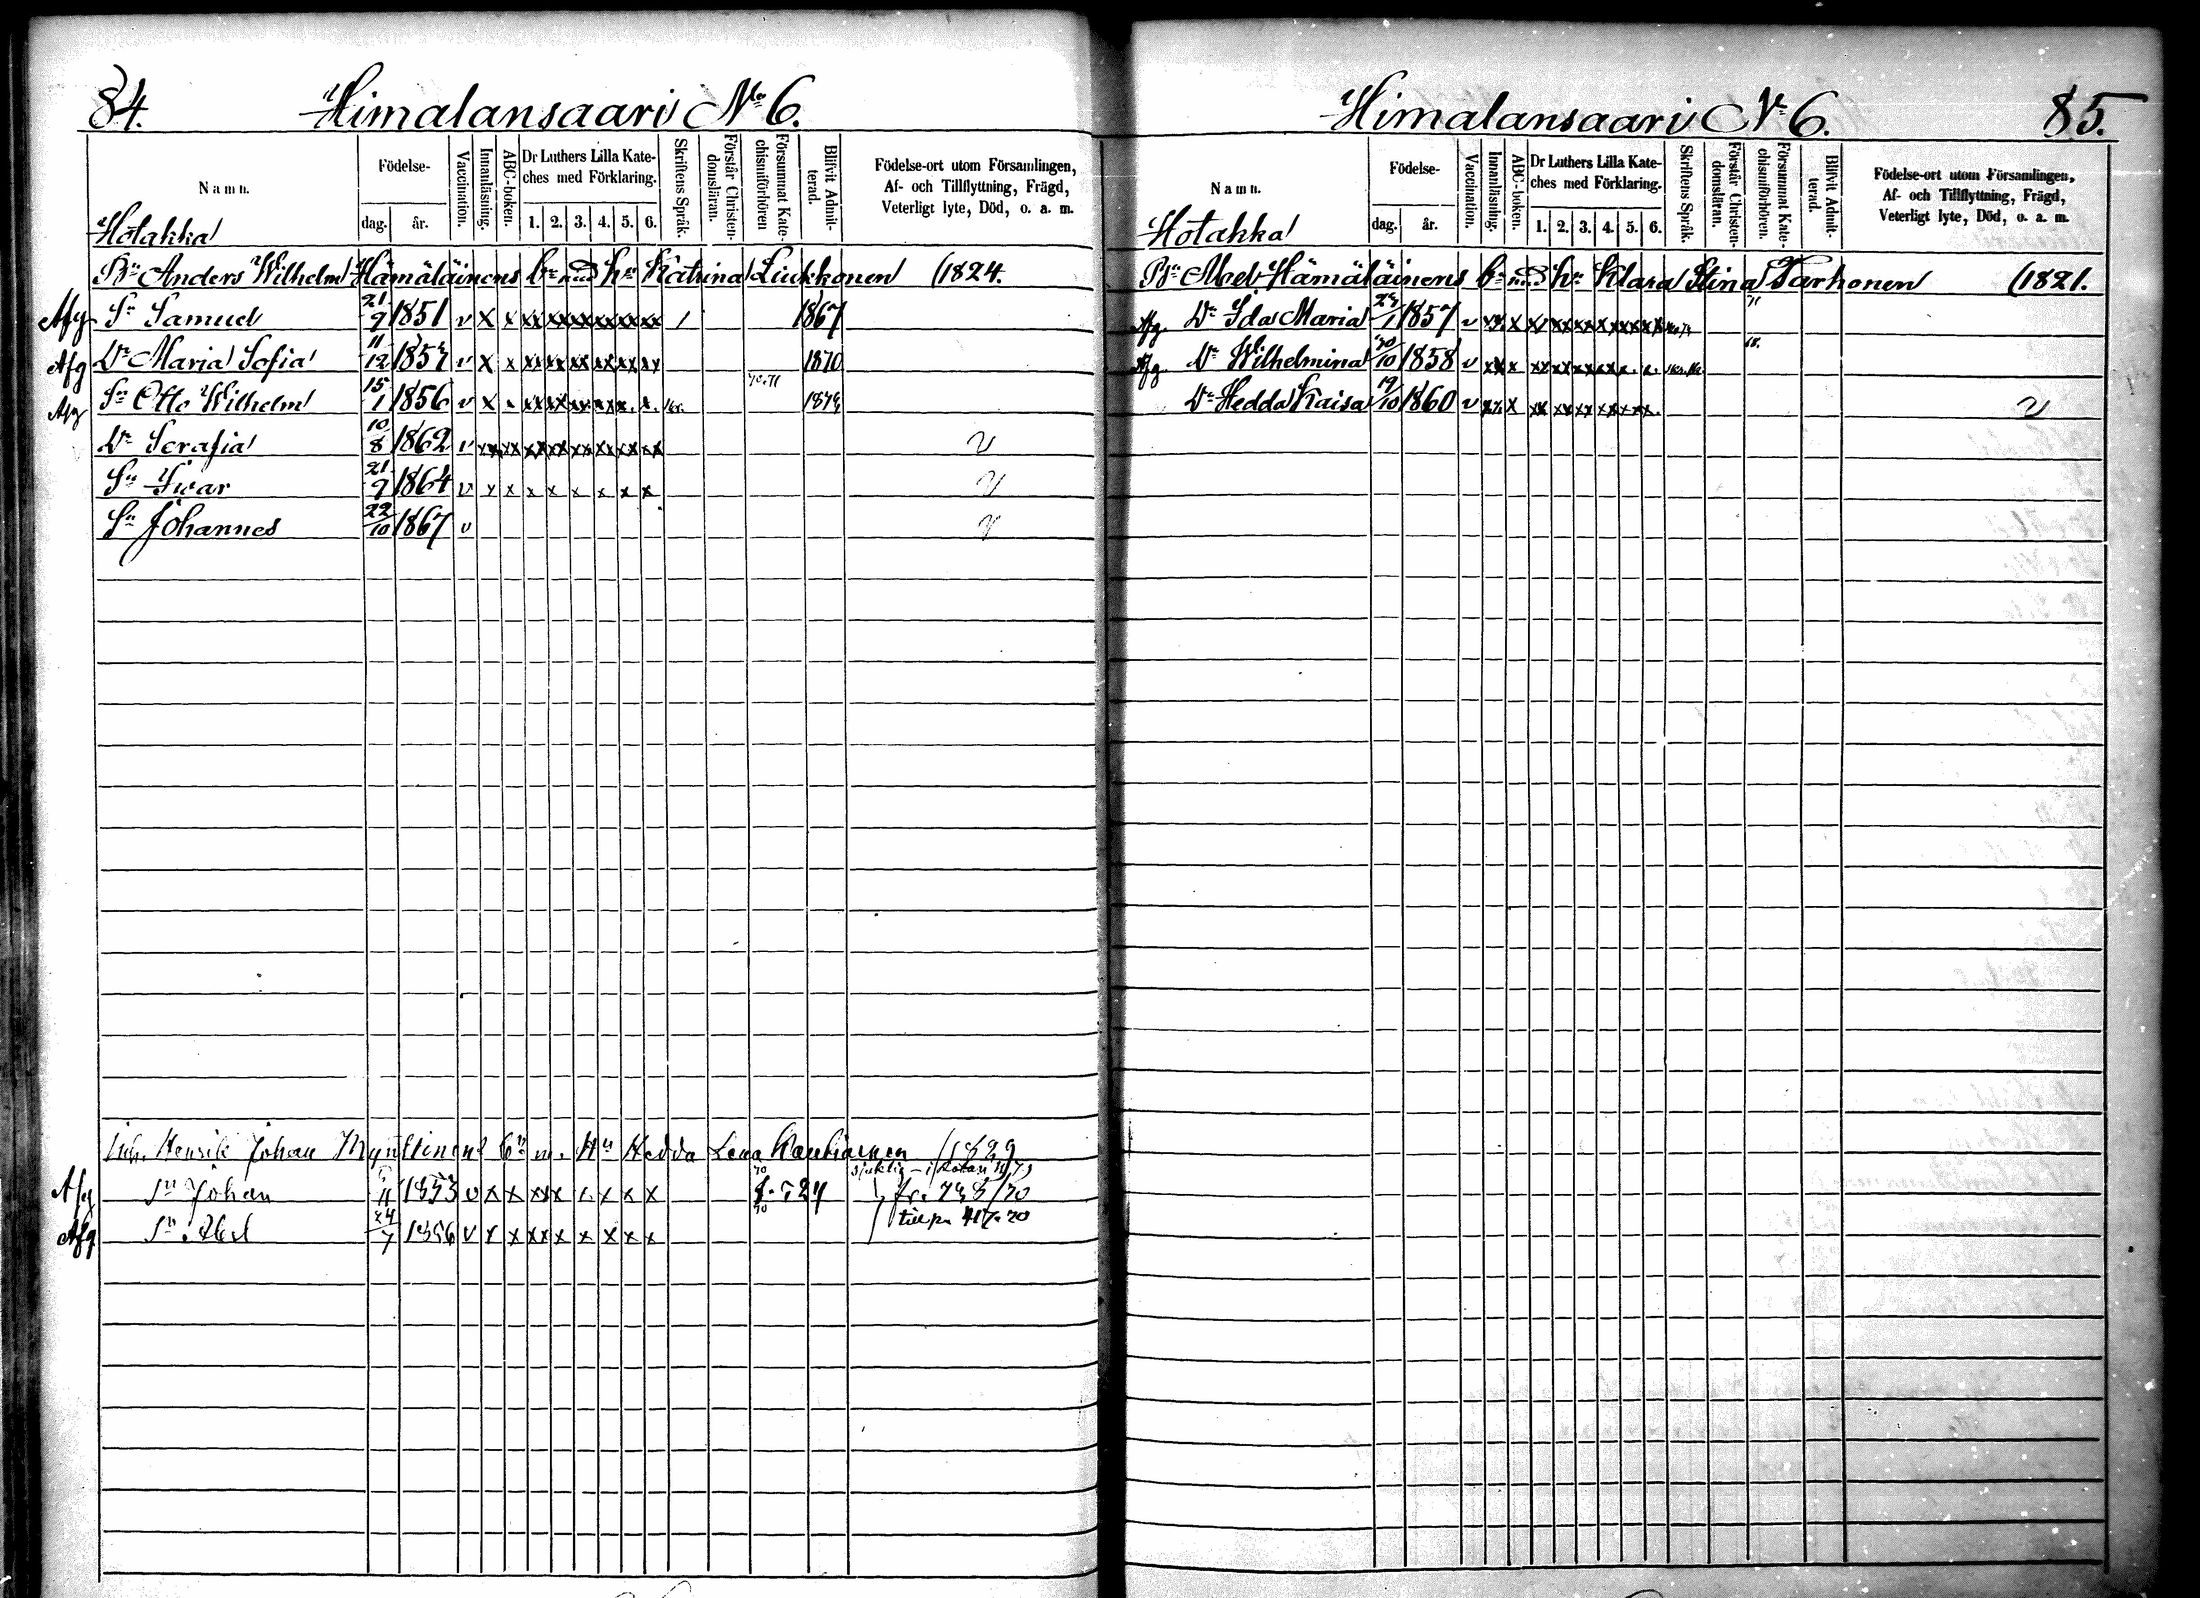 84. Himalansaari No 6.
Namn. Födelse- dag. år. Vaccination. Innanläsning. ABC-boken. Dr Luthers Lilla Kateches med Förklaring. 1. 2. 3. 4. 5. 6. Skriftens Språk. Förstår Christendomsläran. Försummat Katechismiförhören Blifvit Admitterad. Födelse-ort utom Församlingen, Af- och Tillflyttning, Frägd, Veterligt lyte, Död, o. a. m.
Hotakka
Bn Anders Wilhelm Hämäläinens bn med hu Katrina Liukkonen (1824.
Afg Sn Samuel 21/9 1851 v x x xx xx xx xx xx xx 1 1867
Afg Dr Maria Sofia 11/12 1854 v x x xx xx xx xx xx xx 1870
Afg Sn Otto Wilhelm 15/1 1856 v x x xx xx xx xx x. x. 70.71
Dr Serafia 10/8 1862 v xx xx xx xx xx xx xx xx v
Sn Iwar 21/9 1864 v x x x x x x x x v
Sn Johannes 22/10 1867 v v
Inh. Henrik Johan Mynttinens bn m. Hu Hedda Lena (1829
Afg Sn Johan 11 1853 v x x xx x x. x x x fr. 738/70
Afg Sn Abel 24/7 1856 v x x xx x x x x x till p. 417. 70
Himalansaari No 6. 85.
Namn. Födelse- dag. år. Vaccination. Innanläsning. ABC-boken. Dr Luthers Lilla Kateches med Förklaring. 1. 2. 3. 4. 5. 6. Skriftens Språk. Förstår Christendomsläran. Försummat Katechismiförhören. Blifvit Admitterad. Födelse-ort utom Församlingen, Af- och Tillflyttning, Frägd, Veterligt lyte, Död, o. a. m.
Hotakka
Bn Abel Hämäläinens bn med hu Klara Stina Tarhonen (1821.
Afg. Dr Ida Maria 1857 v xx x xx xx xx xx xx xx 71
Afg. Dr Wilhelmina 30/10 1858 v xx x xx xx xx xx x. x. 68.
Dr Hedda Kaisa 19/10 1860 v xx x xx xx xx xx xx xx. v